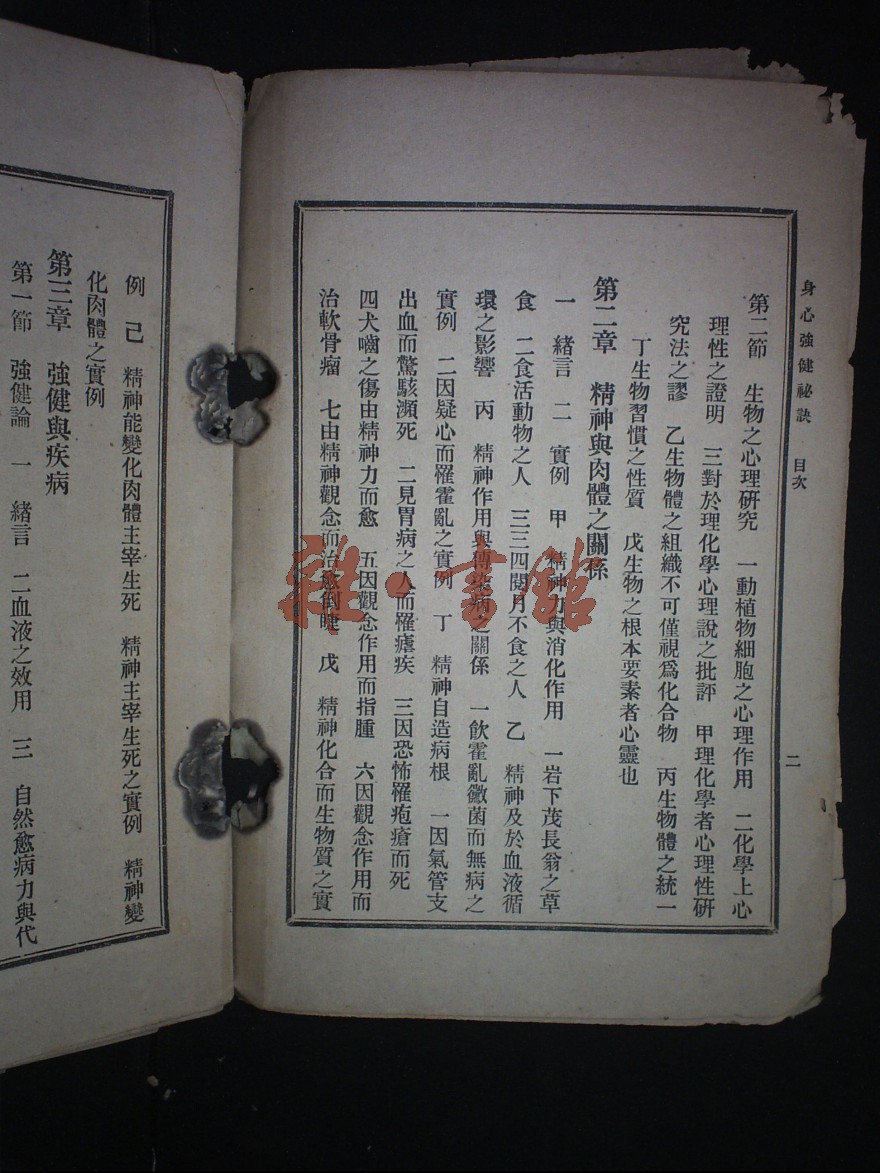 身心強健祕訣 目次 二
第二節 生物之心理研究 一動植物細胞之心理作用 二化學上心
理性之證明 三對於理化學心理說之批評 甲理化學者心理性研
究法之謬 乙生物體之組織不可僅視爲化合物 丙生物體之統一
丁生物習慣之性質 戊生物之根本要素者心靈也
第二章 精神與肉體之關係
一 緒言 二 實例 甲 精神力與消化作用 一岩下茂長翁之草
食 二食活動物之人 三三四閱月不食之人 乙 精神及於血液循
環之影響 丙 精神作用與傳染病之關係 一飲霍亂黴菌而無病之
實例 二因疑心而罹霍亂之實例 丁 精神自造病根 一因氣管支
出血而驚駭瀕死 二見胃病之人而罹瘧疾 三因恐怖罹疱瘡而死
四犬嚙之傷由精神力而愈 五因觀念作用而指腫 六因觀念作用而
治軟骨瘤 七由精神觀念而治愈倒睫 戊 精神化合而生物質之實
例 己 精神能變化肉體主宰生死 精神主宰生死之實例 精神變
化肉體之實例
第三章 強健與疾病
第一節 強健論 一 緒言 二血液之效用 三 自然愈病力與代
雜·書館